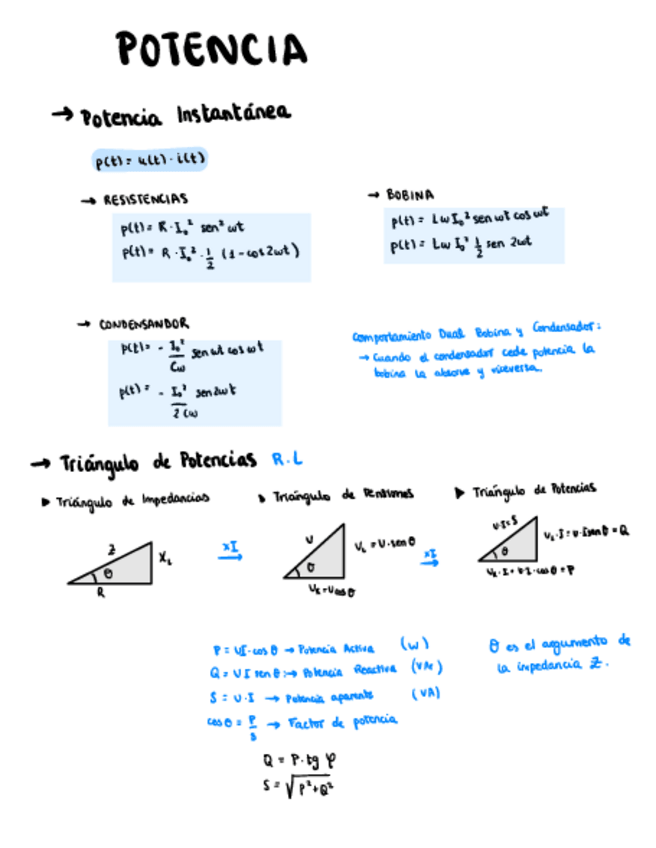 POTENCIA
→ Potencia Instantánea
p(t) = u(t) · i(t)
→ RESISTENCIAS
p(t) = R · I₀² sen² ωt
p(t) = R · I₀² · 1/2 (1 - cos 2ωt)
→ BOBINA
p(t) = Lω I₀² sen ωt cos ωt
p(t) = Lω I₀² 1/2 sen 2ωt
→ CONDENSANDOR
p(t) = - I₀²/Cω sen ωt cos ωt
p(t) = - I₀²/2Cω sen 2ωt
Comportamiento Dual Bobina y Condensador:
→ Cuando el condensador cede potencia la
bobina la absorve y viceversa.
→ Triángulo de Potencias R.L
▶ Triángulo de Impedancias
Z
θ
R
X_L
xI
▶ Triángulo de Tensiones
U
θ
U_R = U cos θ
V_L = U · sen θ
xI
▶ Triángulo de Potencias
U·I = S
θ
U_R · I = U·I·cos θ = P
U_L · I = U·I sen θ = Q
P = UI · cos θ → Potencia Activa (W)
Q = UI sen θ → Potencia Reactiva (VAr)
S = U · I → Potencia aparente (VA)
cos θ = P/S → Factor de potencia
θ es el argumento de
la impedancia Z.
Q = P · tg φ
S = √P² + Q²